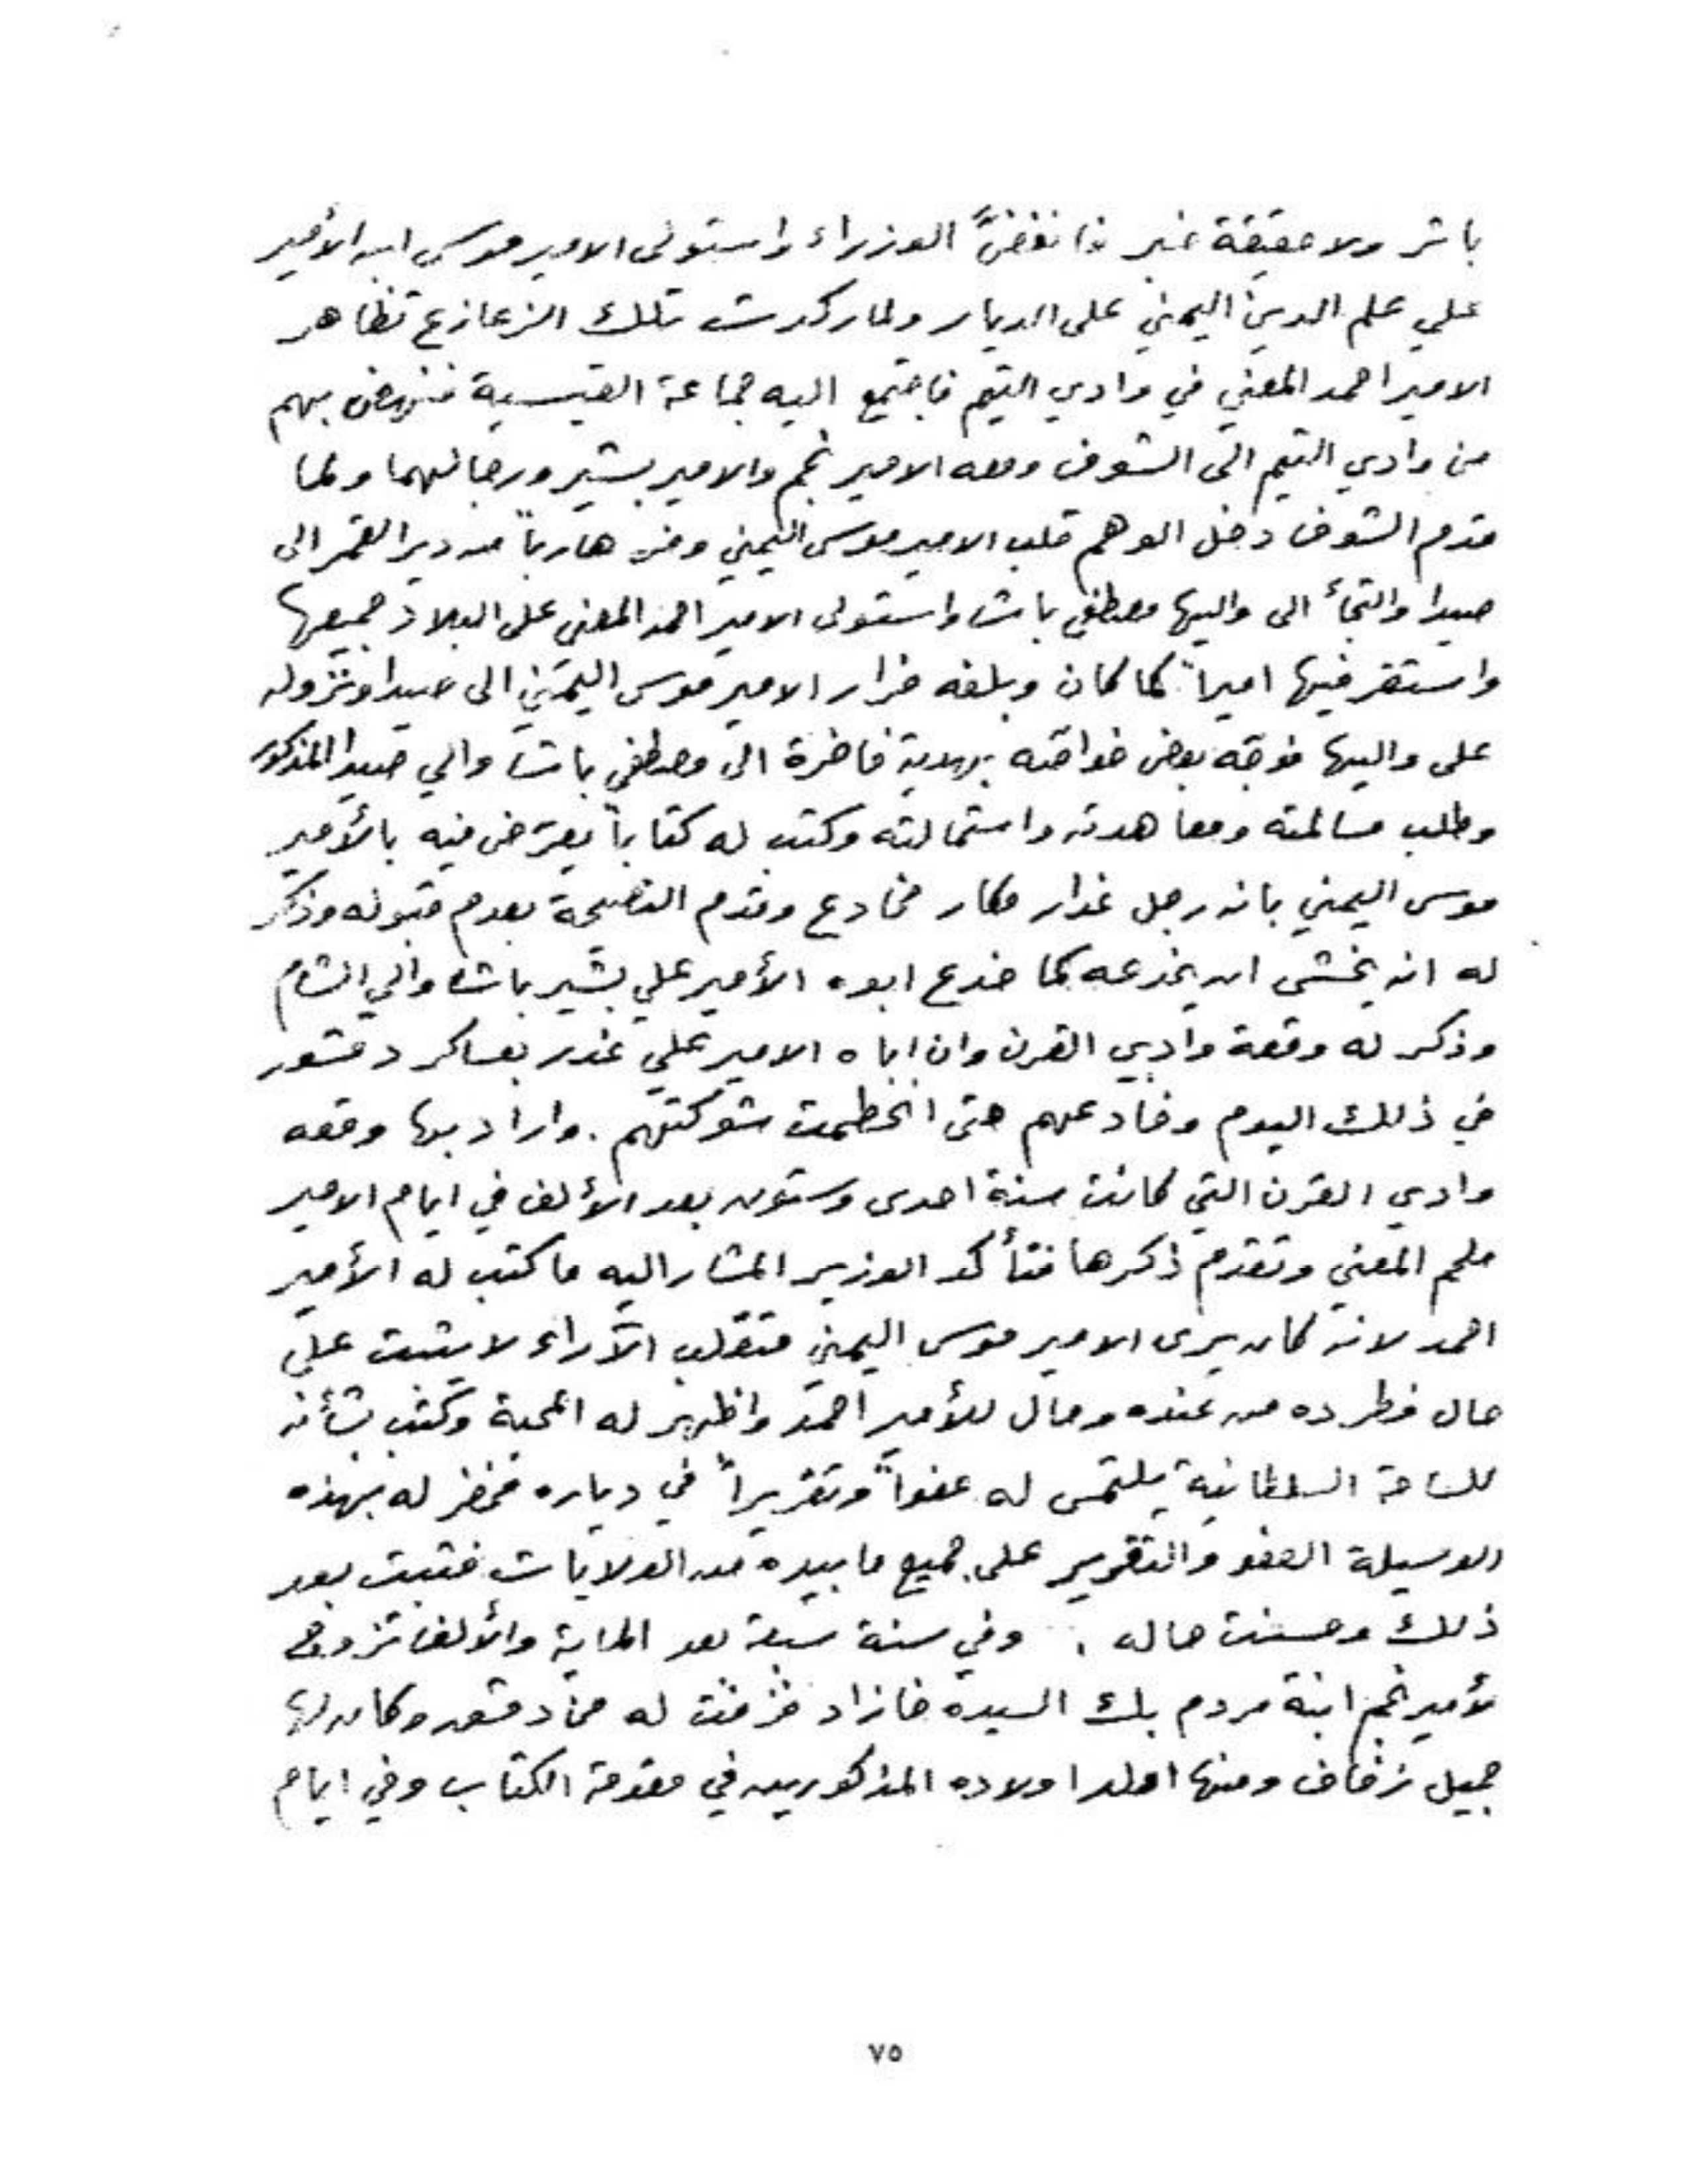 باثر ولا حقيقة خبر فانفضّ الوزراء واستولى الامير موسى ابن الأمير
علي علم الدين اليمني على الديار ولما ركدت تلك الزعازع تظاهر
الامير احمد المعني في وادي التيم فاجتمع اليه جماعة القيسية فنهض بهم
من وادي التيم الى الشوف ومعه الامير نجم والامير بشير ورجالهما ولما
قدم الشوف دخل الوهم قلب الامير موسى اليمني وفر هارباً من دير القمر الى
صيدا والتجأ الى واليها مصطفى باشا واستولى الامير احمد المعني على البلاد جميعها
واستقر فيها اميراً كما كان وبلغه فرار الامير موسى اليمني الى صيدا ونزوله
على واليها فوجّه بعض خواصّه بهدية فاخرة الى مصطفى باشا والي صيدا المذكور
وطلب مسالمته ومعاهدته واستمالته وكتب له كتاباً يعترض فيه بالأمير
موسى اليمني بانه رجل غدار مكار مخادع وقدم النصيحة بعدم قبوله وذكر
له انه يخشى ان يخدعه كما خدع ابوه الأمير علي بشير باشا والي الشام
وذكر له وقعة وادي القرن وان اباه الامير علي غدر بعساكر دمشق
في ذلك اليوم وخادعهم حتى انحطمت شوكتهم . واراد بها وقعه
وادي القرن التي كانت سنة احدى وستون بعد الألف في ايام الامير
ملحم المعني وتقدم ذكرها فتأكد الوزير المشار اليه ما كتب له الأمير
احمد لانه كان يرى الامير موسى اليمني متقلب الآراء لا يثبت على
حال فطرده من عنده ومال للأمير احمد واظهر له المحبة وكتب بشأنه
للساحة السلطانية يلتمس له عفواً وتقريراً في دياره فحضر له بهذه
الوسيلة العفو والتقرير على جميع ما بيده من الولايات فثبت بعد
ذلك وحسنت حاله . وفي سنة سبعة بعد الماية والألف تزوج
لأمير نجم ابنة مردم بك السيدة خانزاد فزفت له من دمشق وكان لها
جميل زفاف ومنها اولد اولاده المذكورين في مقدمة الكتاب وفي ايام
٧٥